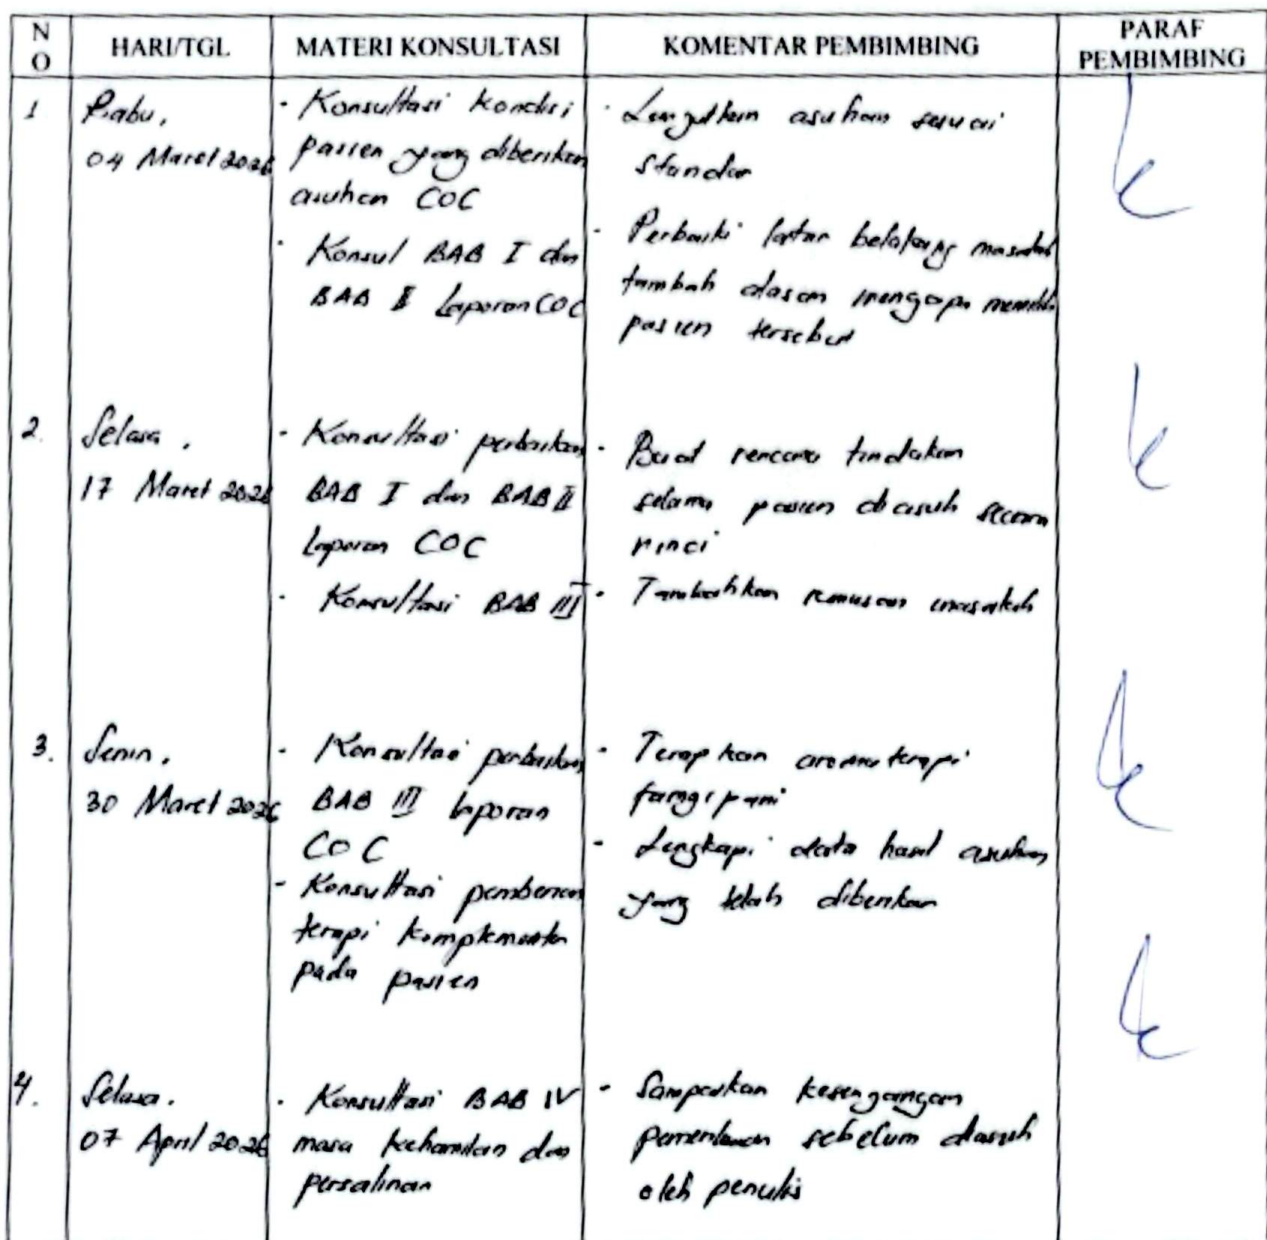 NO
HARI/TGL
MATERI KONSULTASI
KOMENTAR PEMBIMBING
PARAF PEMBIMBING
1
Rabu,
04 Maret 2026
- Konsultasi kondisi
pasien yang diberikan
asuhan COC
- Konsul BAB I dan
BAB II Laporan COC
- Lanjutkan asuhan sesuai
standar
- Perbaiki latar belakang masalah
tambah alasan mengapa memilih
pasien tersebut
2.
Selasa,
17 Maret 2026
- Konsultasi perbaikan
BAB I dan BAB II
Laporan COC
- Konsultasi BAB III
- Buat rencana tindakan
selama pasien diasuh secara
rinci
- Tambahkan rumusan masalah
3.
Senin,
30 Maret 2026
- Konsultasi perbaikan
BAB III laporan
COC
- Konsultasi pemberian
terapi komplementer
pada pasien
- Terapkan aromaterapi
frangipani
- Lengkapi data hasil asuhan
yang telah diberikan
4.
Selasa.
07 April 2026
- Konsultasi BAB IV
masa kehamilan dan
persalinan
- Sampaikan kesenjangan
pemeriksaan sebelum diasuh
oleh penulis